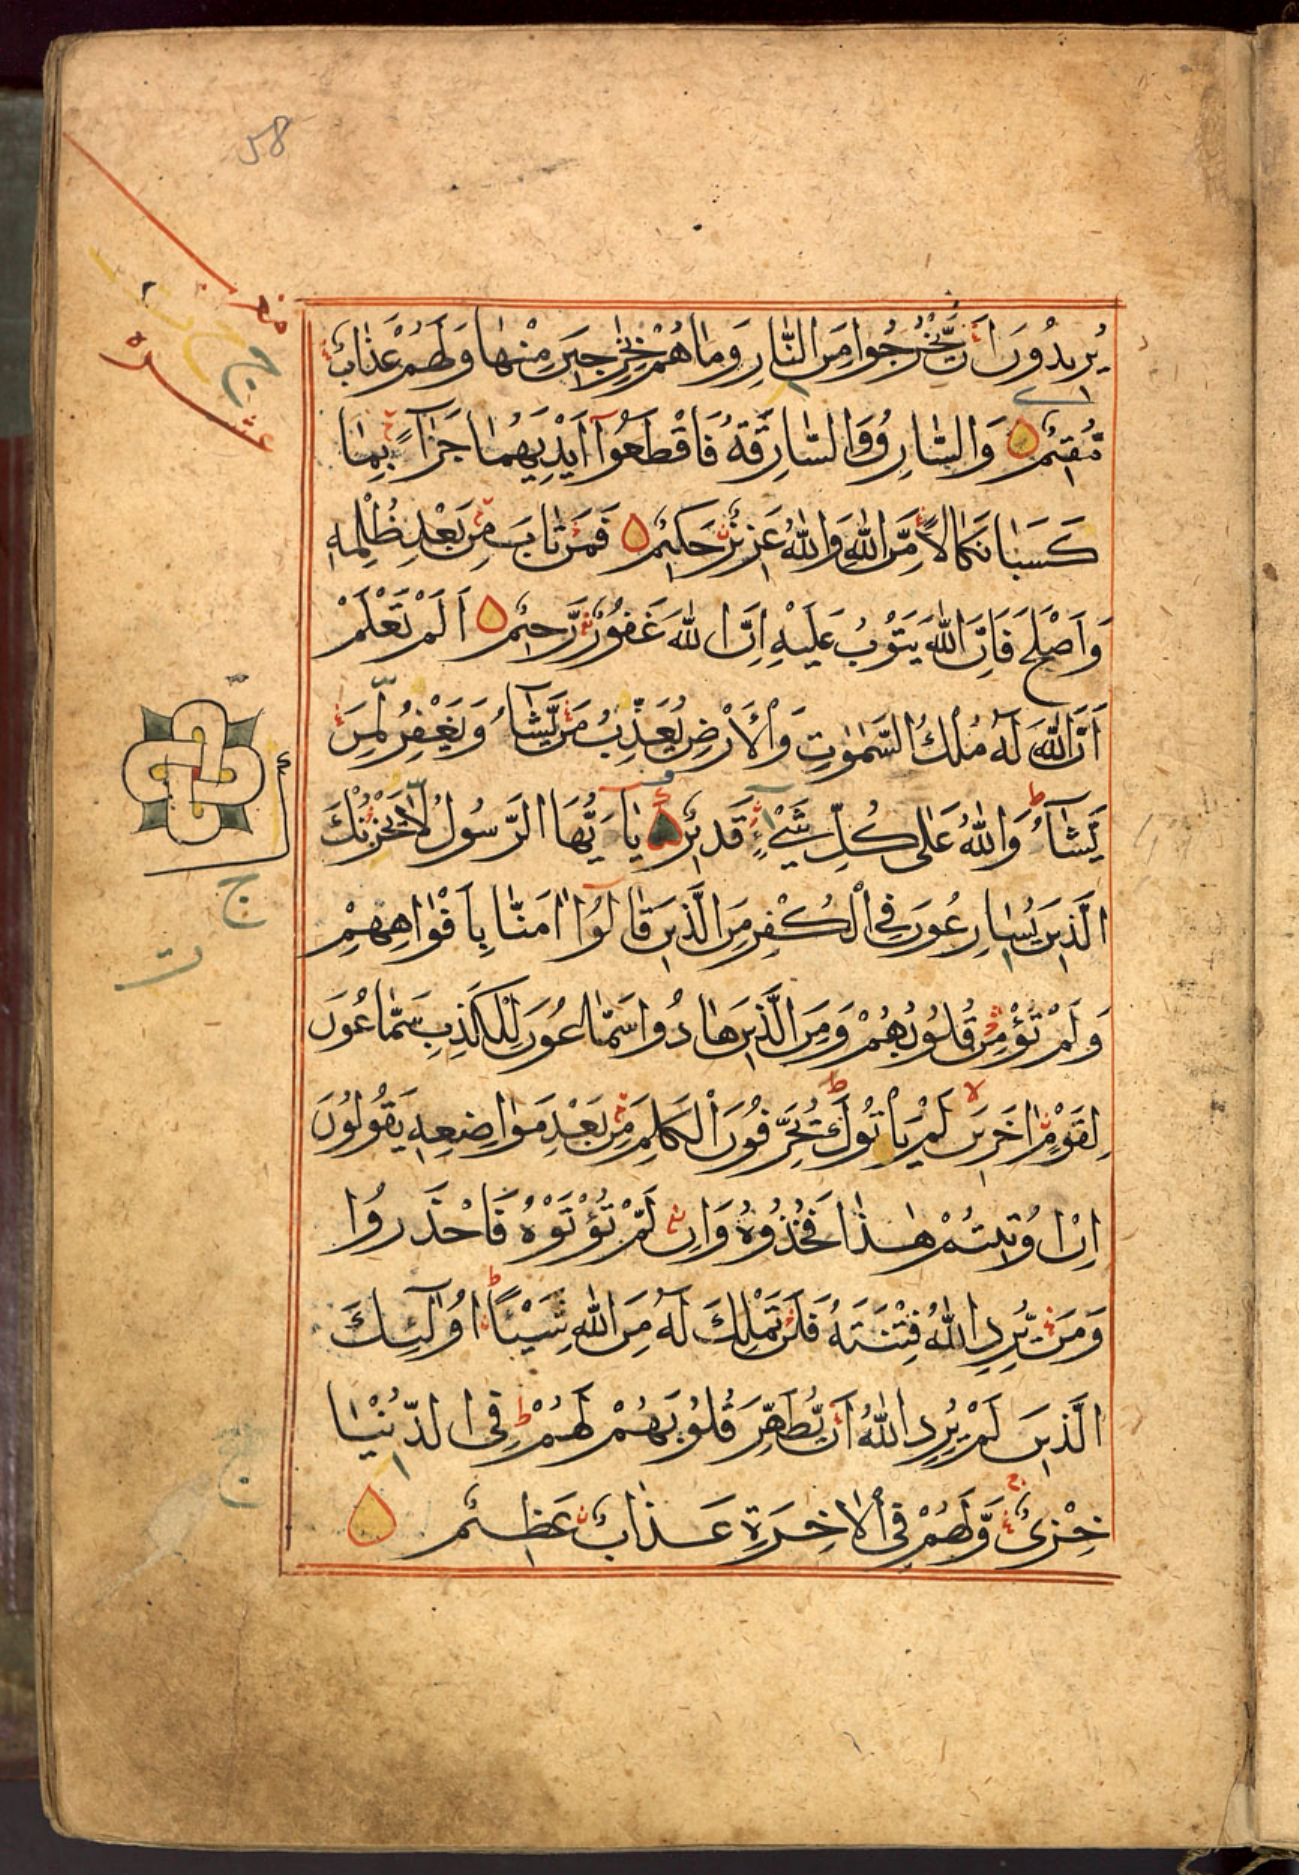 58
يُرِيدُونَ اَنْ يَّخْرُجُوا مِنَ النَّارِ وَمَا هُمْ بِخٰرِجِينَ مِنْهَا وَلَهُمْ عَذَابٌ
مُّقِيمٌ وَالسَّارِقُ وَالسَّارِقَةُ فَاقْطَعُوٓا اَيْدِيَهُمَا جَزَآءً بِمَا
كَسَبَا نَكَالًا مِّنَ اللهِ وَاللهُ عَزِيزٌ حَكِيمٌ فَمَنْ تَابَ مِنْ بَعْدِ ظُلْمِهٖ
وَاَصْلَحَ فَاِنَّ اللهَ يَتُوْبُ عَلَيْهِ اِنَّ اللهَ غَفُوْرٌ رَّحِيمٌ اَلَمْ تَعْلَمْ
اَنَّ اللهَ لَهٗ مُلْكُ السَّمٰوٰتِ وَالْاَرْضِ يُعَذِّبُ مَنْ يَّشَآءُ وَيَغْفِرُ لِمَنْ
يَّشَآءُ وَاللهُ عَلٰى كُلِّ شَيْءٍ قَدِيرٌ يَآاَيُّهَا الرَّسُولُ لَا يَحْزُنْكَ
الَّذِينَ يُسَارِعُونَ فِي الْكُفْرِ مِنَ الَّذِينَ قَالُوٓا اٰمَنَّا بِاَفْوَاهِهِمْ
وَلَمْ تُؤْمِنْ قُلُوبُهُمْ وَمِنَ الَّذِينَ هَادُوا سَمَّاعُونَ لِلْكَذِبِ سَمَّاعُونَ
لِقَوْمٍ اٰخَرِينَ لَمْ يَأْتُوكَ يُحَرِّفُونَ الْكَلِمَ مِنْ بَعْدِ مَوَاضِعِهٖ يَقُولُونَ
اِنْ اُوتِيتُمْ هٰذَا فَخُذُوهُ وَاِنْ لَّمْ تُؤْتَوْهُ فَاحْذَرُوا
وَمَنْ يُّرِدِ اللهُ فِتْنَتَهٗ فَلَنْ تَمْلِكَ لَهٗ مِنَ اللهِ شَيْئًا اُولٰٓئِكَ
الَّذِينَ لَمْ يُرِدِ اللهُ اَنْ يُّطَهِّرَ قُلُوبَهُمْ لَهُمْ فِي الدُّنْيَا
خِزْيٌ وَّلَهُمْ فِي الْاٰخِرَةِ عَذَابٌ عَظِيمٌ